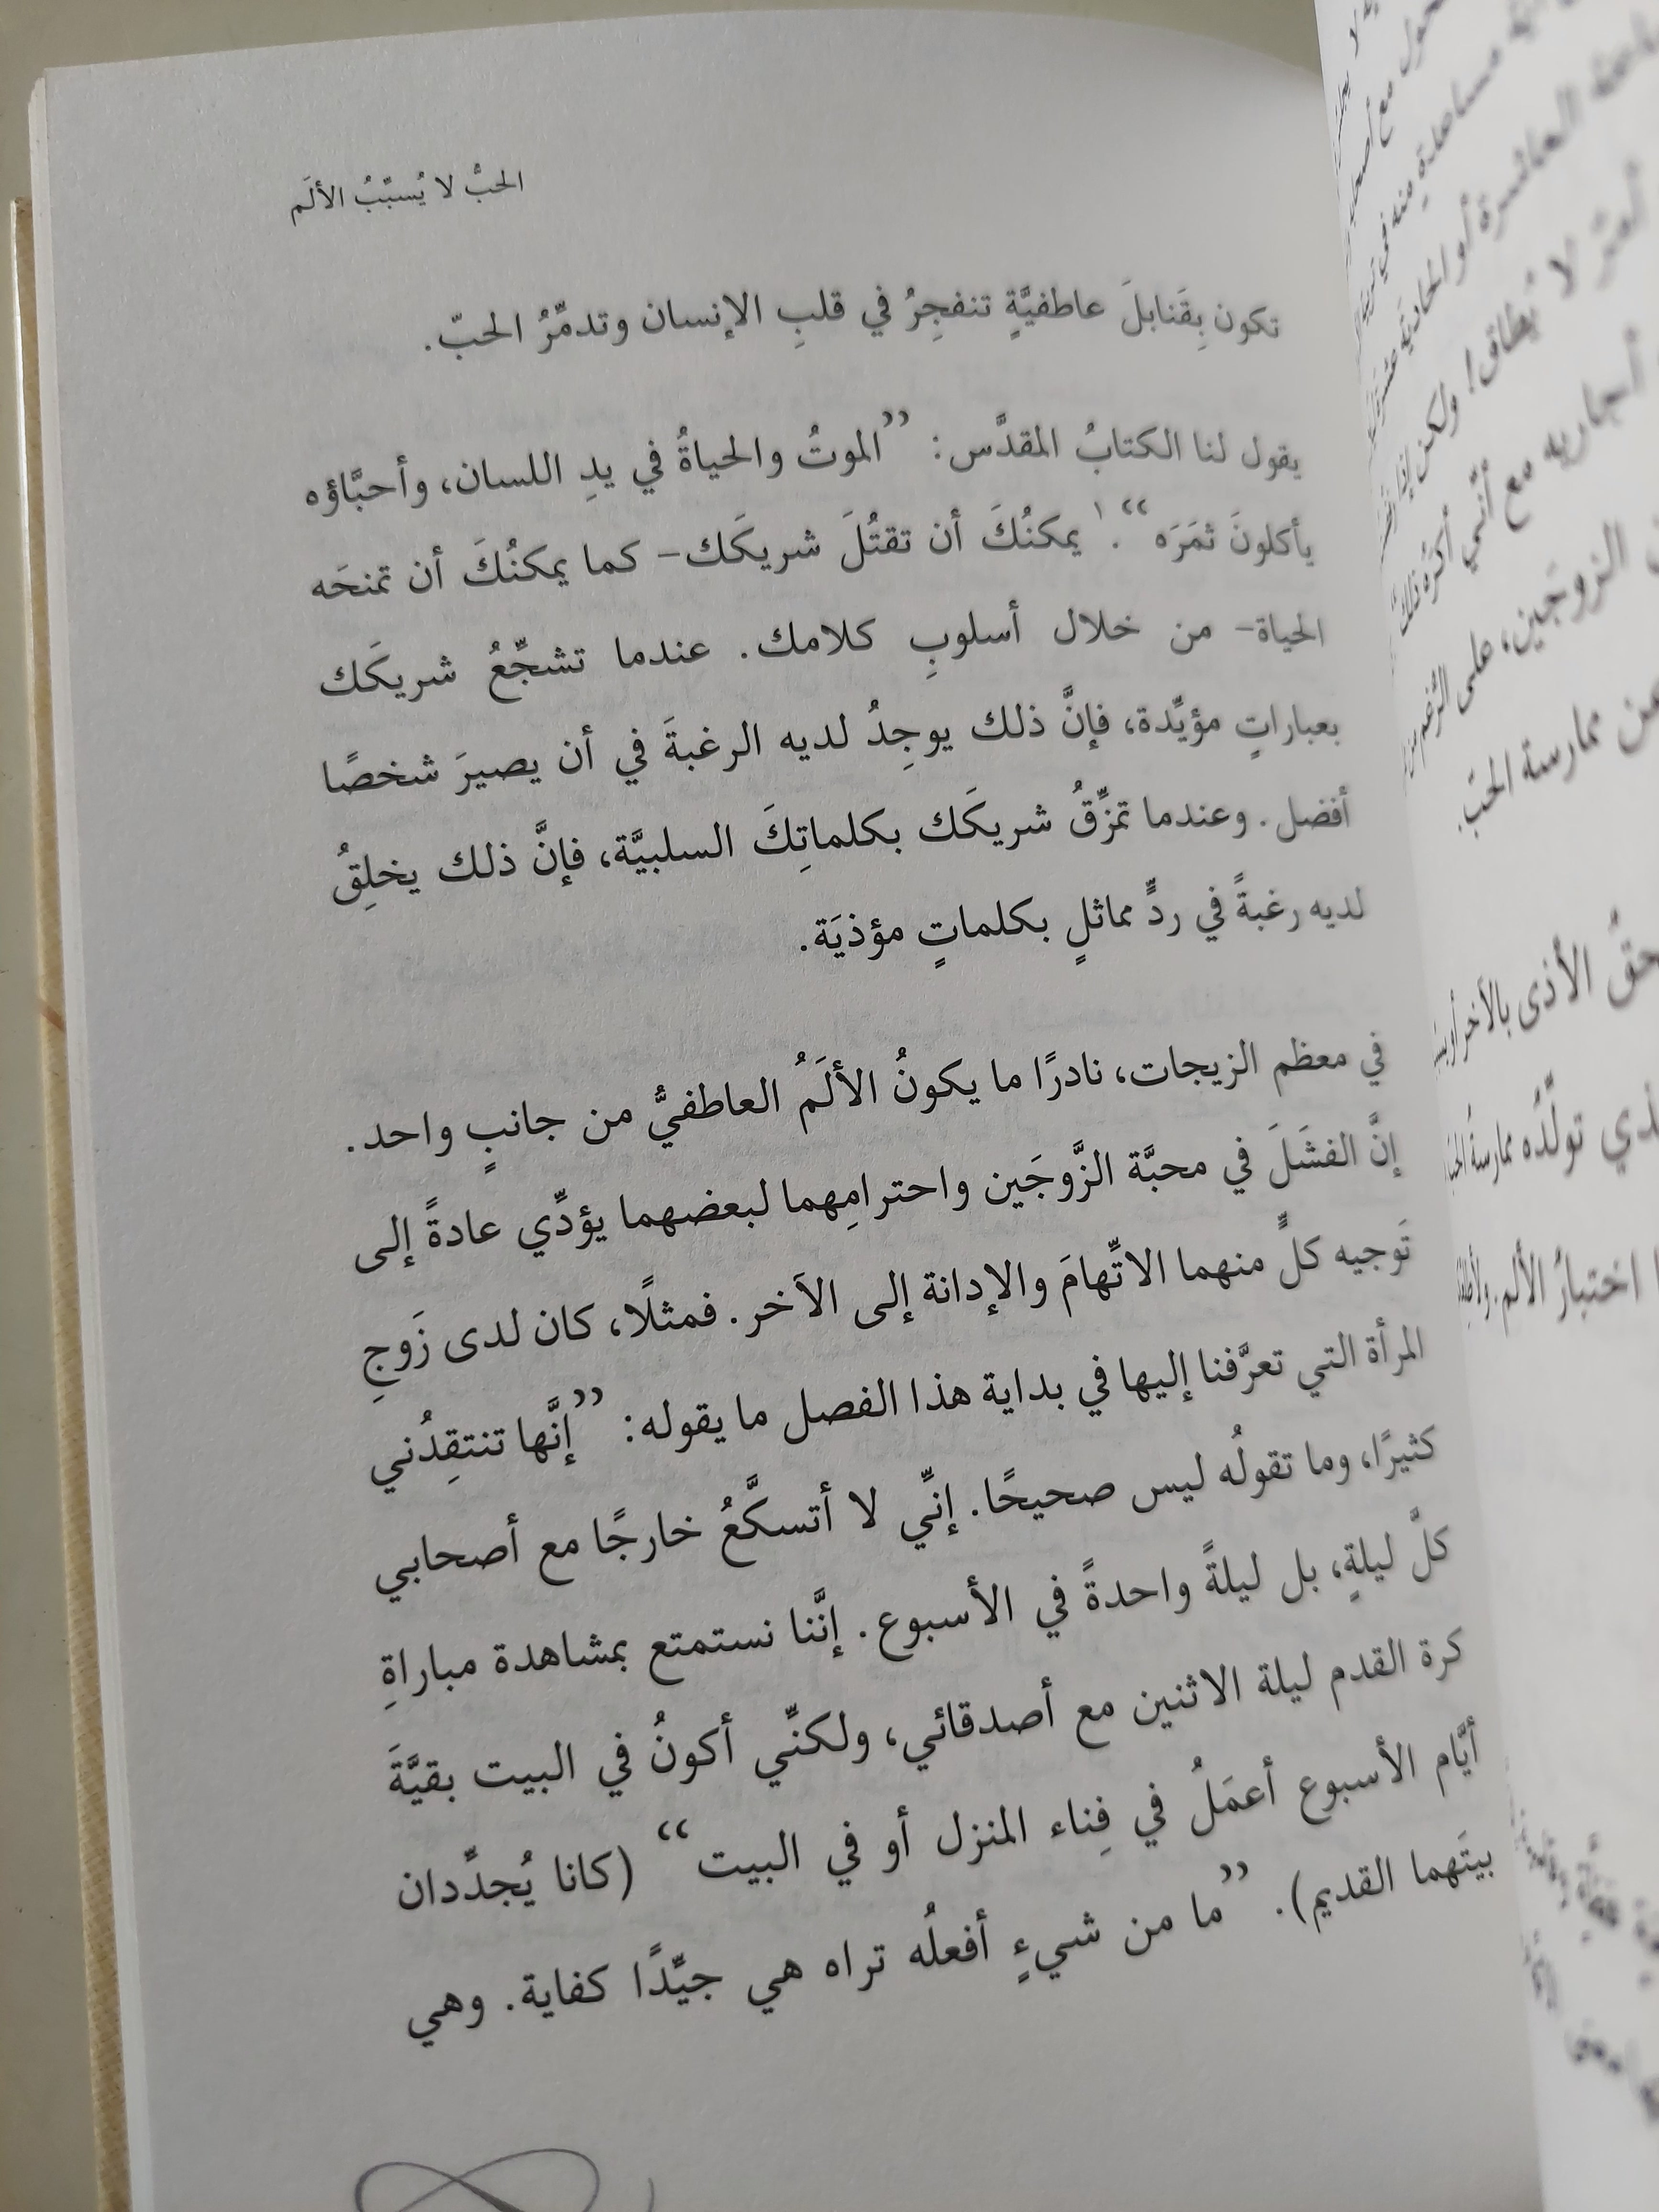 الحبُّ لا يُسبِّبُ الألَم
تكون بِقَنابلَ عاطفيَّةٍ تنفجِرُ في قلبِ الإنسان وتدمِّرُ الحبّ.
يقول لنا الكتابُ المقدَّس: ”الموتُ والحياةُ في يدِ اللسان، وأحبَّاؤه
يأكلونَ ثمَرَه“.١ يمكنُكَ أن تقتُلَ شريكَك– كما يمكنُكَ أن تمنحَه
الحياة– من خلال أسلوبِ كلامك. عندما تشجِّعُ شريكَك
بعباراتٍ مؤيِّدة، فإنَّ ذلك يوجِدُ لديه الرغبةَ في أن يصيرَ شخصًا
أفضل. وعندما تمزِّقُ شريكَك بكلماتِكَ السلبيَّة، فإنَّ ذلك يخلِقُ
لديه رغبةً في ردٍّ مماثلٍ بكلماتٍ مؤذيَة.
في معظم الزيجات، نادرًا ما يكونُ الألَمُ العاطفيُّ من جانبٍ واحد.
إنَّ الفشَلَ في محبَّة الزَّوجَين واحترامِهما لبعضهما يؤدِّي عادةً إلى
تَوجيه كلٍّ منهما الاتِّهامَ والإدانة إلى الآخر. فمثلًا، كان لدى زَوجِ
المرأة التي تعرَّفنا إليها في بداية هذا الفصل ما يقوله: ”إنَّها تنتقِدُني
كثيرًا، وما تقولُه ليس صحيحًا. إنِّي لا أتسكَّعُ خارجًا مع أصحابي
كلَّ ليلةٍ، بل ليلةً واحدةً في الأسبوع. إنَّنا نستمتع بمشاهدة مباراةِ
كرة القدم ليلة الاثنين مع أصدقائي، ولكنِّي أكونُ في البيت بقيَّةَ
أيَّام الأسبوع أعمَلُ في فِناء المنزل أو في البيت“ (كانا يُجدِّدان
بيتَهما القديم). ”ما من شيءٍ أفعلُه تراه هي جيِّدًا كفاية. وهي
مع أصحاب
مساعدةٍ منه في
لا يُطاق! ولكن إذا
مع أنَّني أكرَه ذلك
الزوجَين، على الرغم من
من ممارسة الحبّ.
الأذى بالآخر أو
تولِّدُه ممارسةُ
اختبارُ الألم.